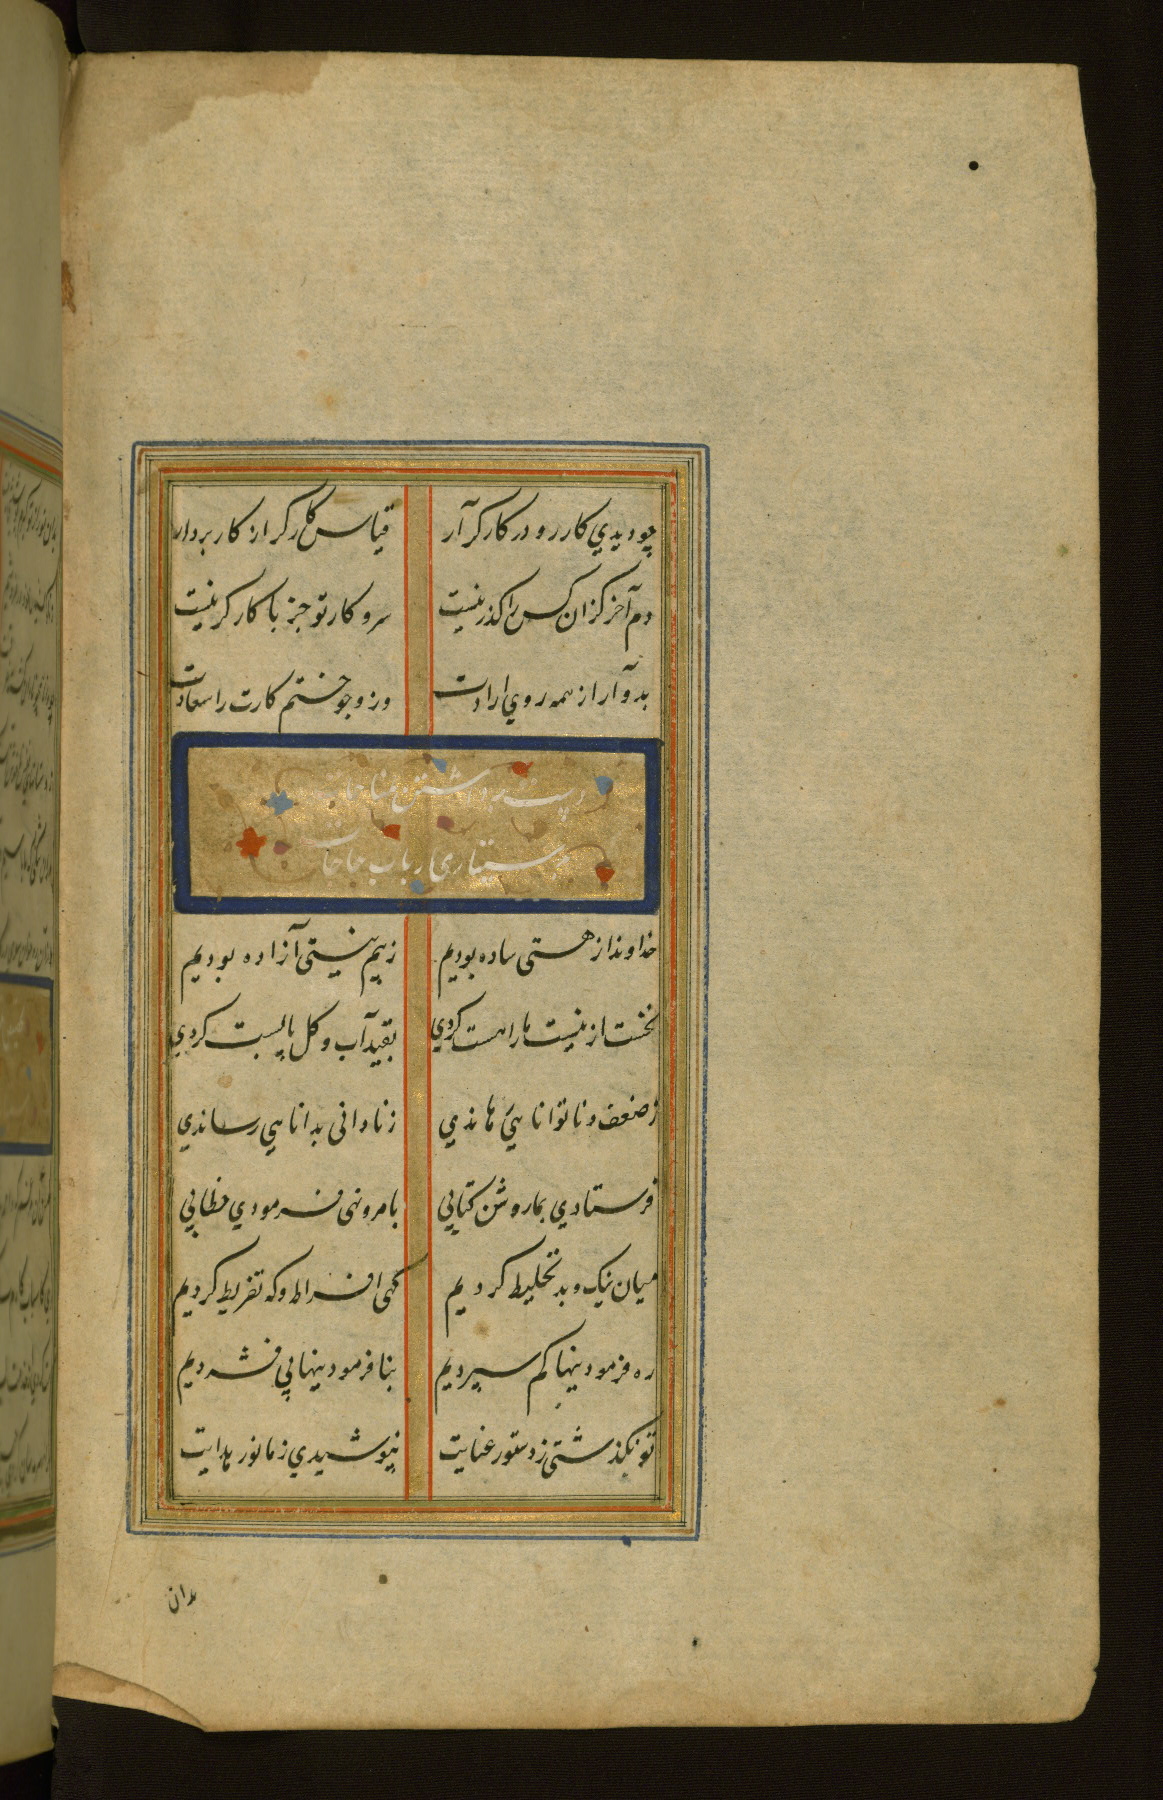 چو دیدی کار رو در کارگر آر قیاس کارگر از کار بردار
دم آخر کزان کس را گذر نیست سر و کار تو جز با کارگر نیست
بدو آر از همه روی ارادت وزو جو ختم کارت را سعادت
مناجات
ارباب حاجات
خداوندا ز هستی ساده بودیم ز بیم نیستی آزاده بودیم
نخست از نیست ما را هست کردی بقید آب و گل پابست کردی
ز ضعف و ناتوانایی رهاندی ز نادانی بدانایی رساندی
فرستادی بما روشن کتابی بامر و نهی فرمودی خطابی
میان نیک و بد تخلیط کردیم گهی افراط و گه تفریط کردیم
ره فرمودنیها کم سپردیم بنافرمودنیها پی فشردیم
تو نگذشتی ز دستور عنایت نپوشیدی ز ما نور هدایت
بدان